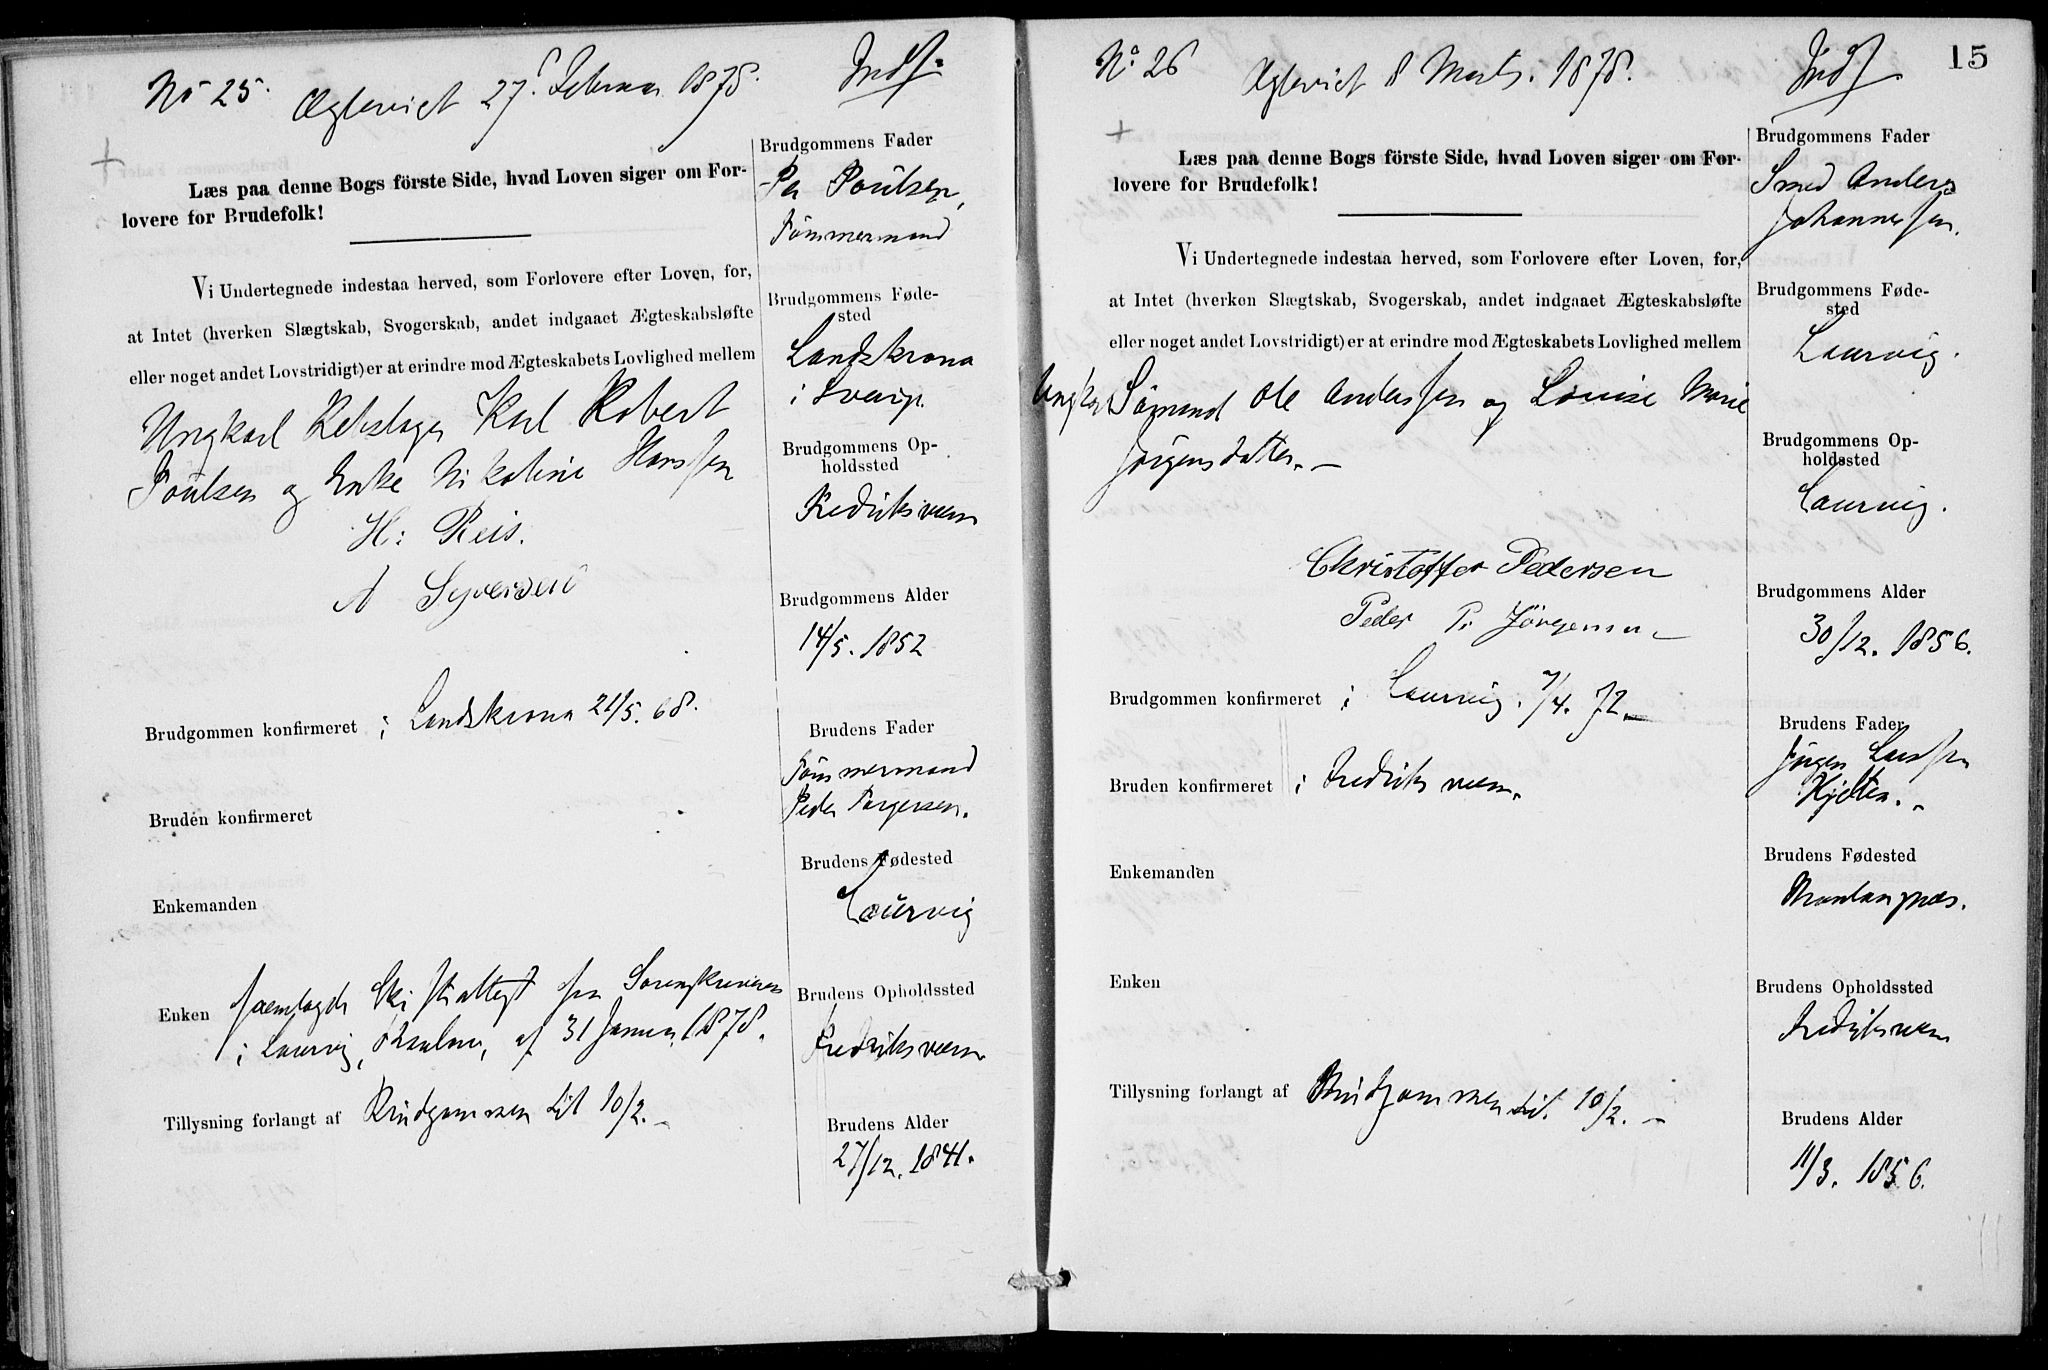 No 25. Ægteviet 27 Februar 1878. Indf.
Læs paa denne Bogs förste Side, hvad Loven siger om For-
lovere for Brudefolk!
Vi Undertegnede indestaa herved, som Forlovere efter Loven, for,
at Intet (hverken Slægtskab, Svogerskab, andet indgaaet Ægteskabsløfte
eller noget andet Lovstridigt) er at erindre mod Ægteskabets Lovlighed mellem
Ungkarl Rebslager Karl Robert
Poulsen og Enke Nikoline Hanssen
H: Reis.
A Syversen
Brudgommen konfirmeret i Landskrona 21/5. 68.
Bruden konfirmeret
Enkemanden
Enken fremlagde Skifteattest fra Sorenskriveren
i Laurvig, af 31 Januar 1878.
Tillysning forlangt af Brudgommen til 10/2.
Brudgommens Fader
Per Poulsen,
Tømmermand
Brudgommens Føde-
sted
Landskrona
i Sverig.
Brudgommens Op-
holdssted
Fredriksværn
Brudgommens Alder
14/5. 1852
Brudens Fader
Tømmermand
Peder Torgersen.
Brudens Fødested
Laurvig
Brudens Opholdssted
Fredriksværn
Brudens Alder
27/12. 1841.
No 26 Ægteviet 8 Marts. 1878. Indf 15
Læs paa denne Bogs förste Side, hvad Loven siger om For-
lovere for Brudefolk!
Vi Undertegnede indestaa herved, som Forlovere efter Loven, for,
at Intet (hverken Slægtskab, Svogerskab, andet indgaaet Ægteskabsløfte
eller noget andet Lovstridigt) er at erindre mod Ægteskabets Lovlighed mellem
Ungkarl Sömand Ole Anderssen og Lovise Marie
Jörgensdatter.
Christoffer Pedersen
Peder P. Jörgensen
Brudgommen konfirmeret i Laurvig. 7/4. 72.
Bruden konfirmeret i Fredriksværn.
Enkemanden
Enken
Tillysning forlangt af Brudgommen til. 10/2.
Brudgommens Fader
Smed Anders
Johannessen.
Brudgommens Føde-
sted
Laurvig.
Brudgommens Op-
holdssted
Laurvig.
Brudgommens Alder
30/12. 1856.
Brudens Fader
Jörgen Larssen
Brudens Fødested
Brudens Opholdssted
Fredriksværn
Brudens Alder
11/3. 1856.